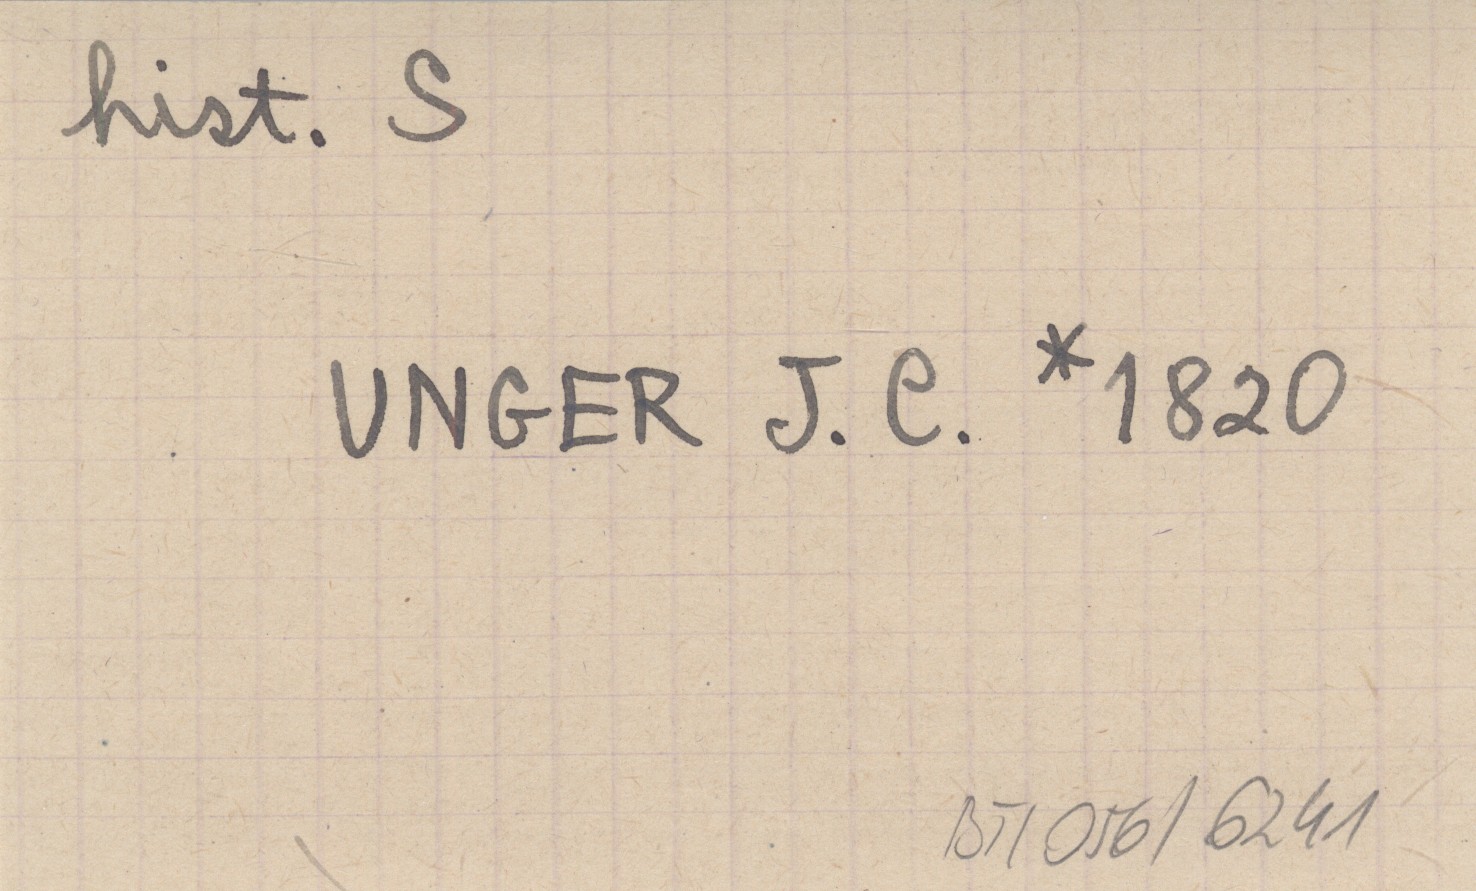 hist. S
UNGER J. C. *1820
BTI 056/6241